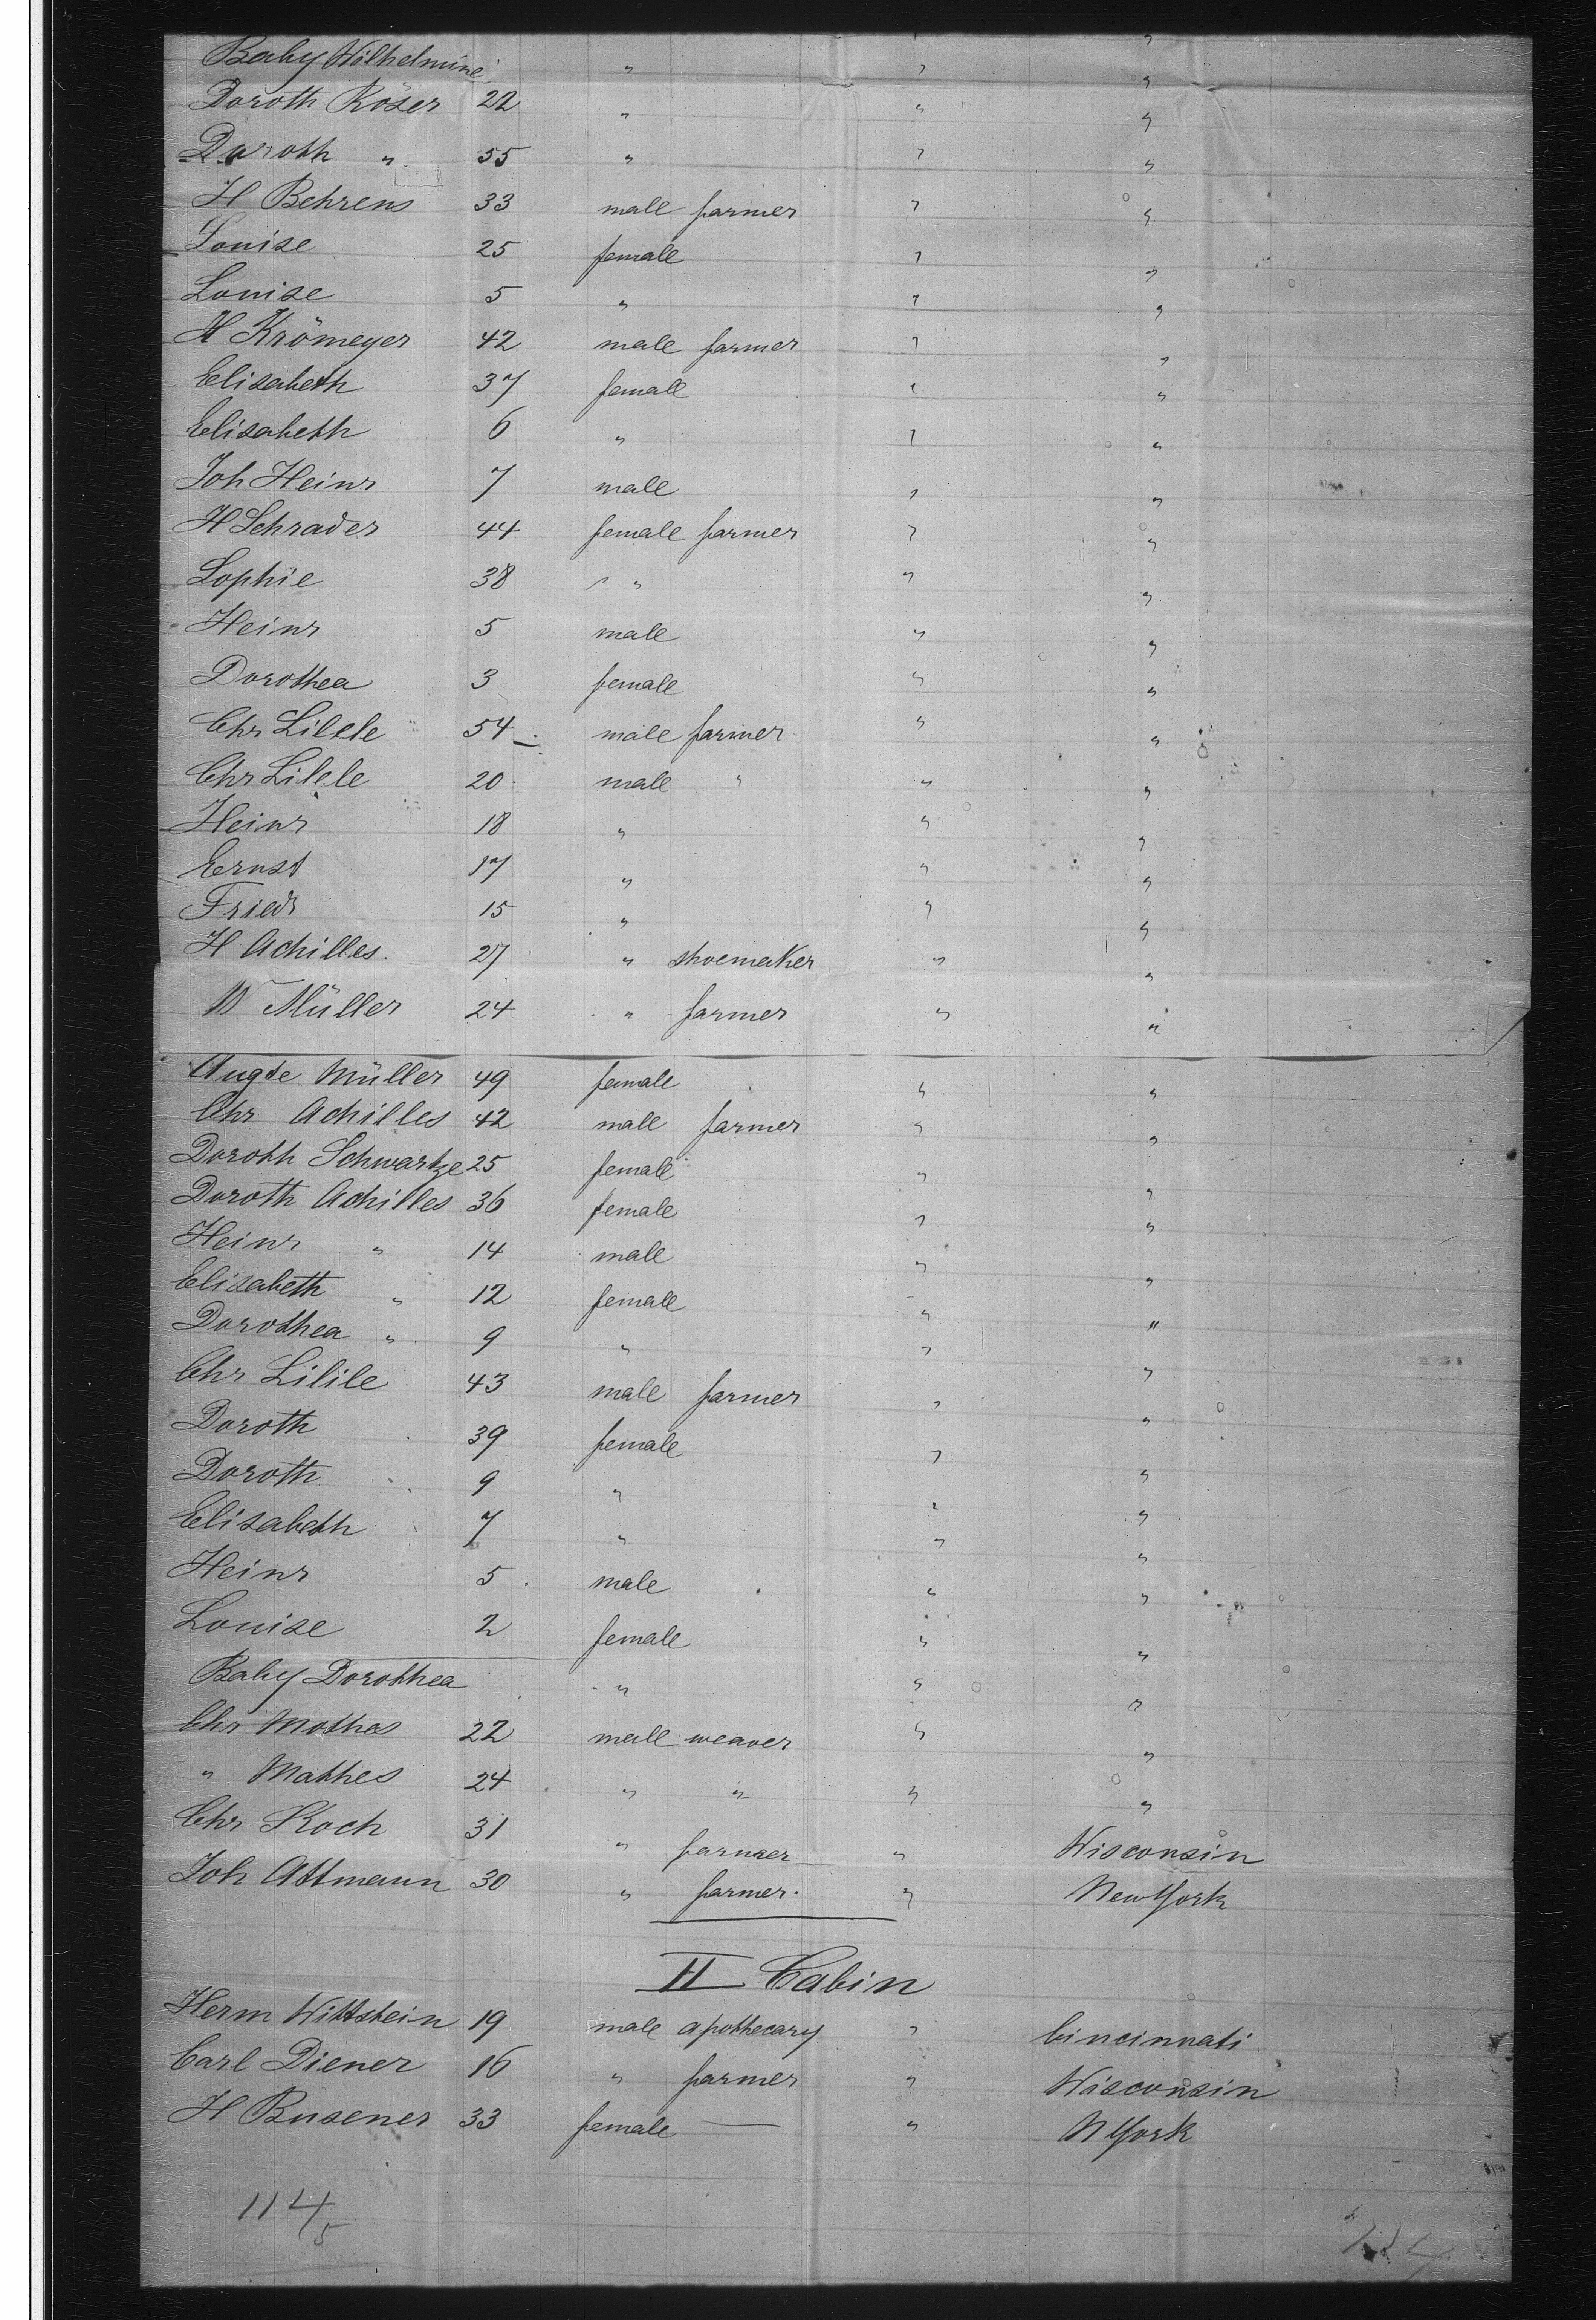 Baby Wilhelmine " " "
Doroth Röser 22 " " "
Doroth " 55 " " "
H Behrens 33 male farmer " "
Louise 25 female " "
Louise 5 " " "
H Krömeyer 42 male farmer " "
Elisabeth 37 female " "
Elisabeth 6 " " "
Joh Heinr 7 male " "
H Schrader 44 female farmer " "
Sophie 38 " " " "
Heinr 5 male " "
Dorothea 3 female " "
Chr Lilele 54 male farmer " "
Chr Lilele 20 male " " "
Heinr 18 " " "
Ernst 17 " " "
Friedr 15 " " "
H Achilles 27 " shoemaker " "
W Müller 24 " farmer " "
Augte Müller 49 female " "
Chr Achilles 42 male farmer " "
Doroth Schwartze 25 female " "
Doroth Achilles 36 female " "
Heinr " 14 male " "
Elisabeth " 12 female " "
Dorothea " 9 " " "
Chr Lilile 43 male farmer " "
Doroth 39 female " "
Doroth 9 " " "
Elisabeth 7 " " "
Heinr 5 male " "
Louise 2 female " "
Baby Dorothea " " "
Chr Mothes 22 male weaver " "
" Mathes 24 " " " "
Chr Koch 31 " farmer " Wisconsin
Joh Attmann 30 " farmer. " New York
II Cabin
Herm Wittstein 19 male apothecary " Cincinnati
Carl Diener 16 " farmer " Wisconsin
H Busener 33 female — " N York
114
5